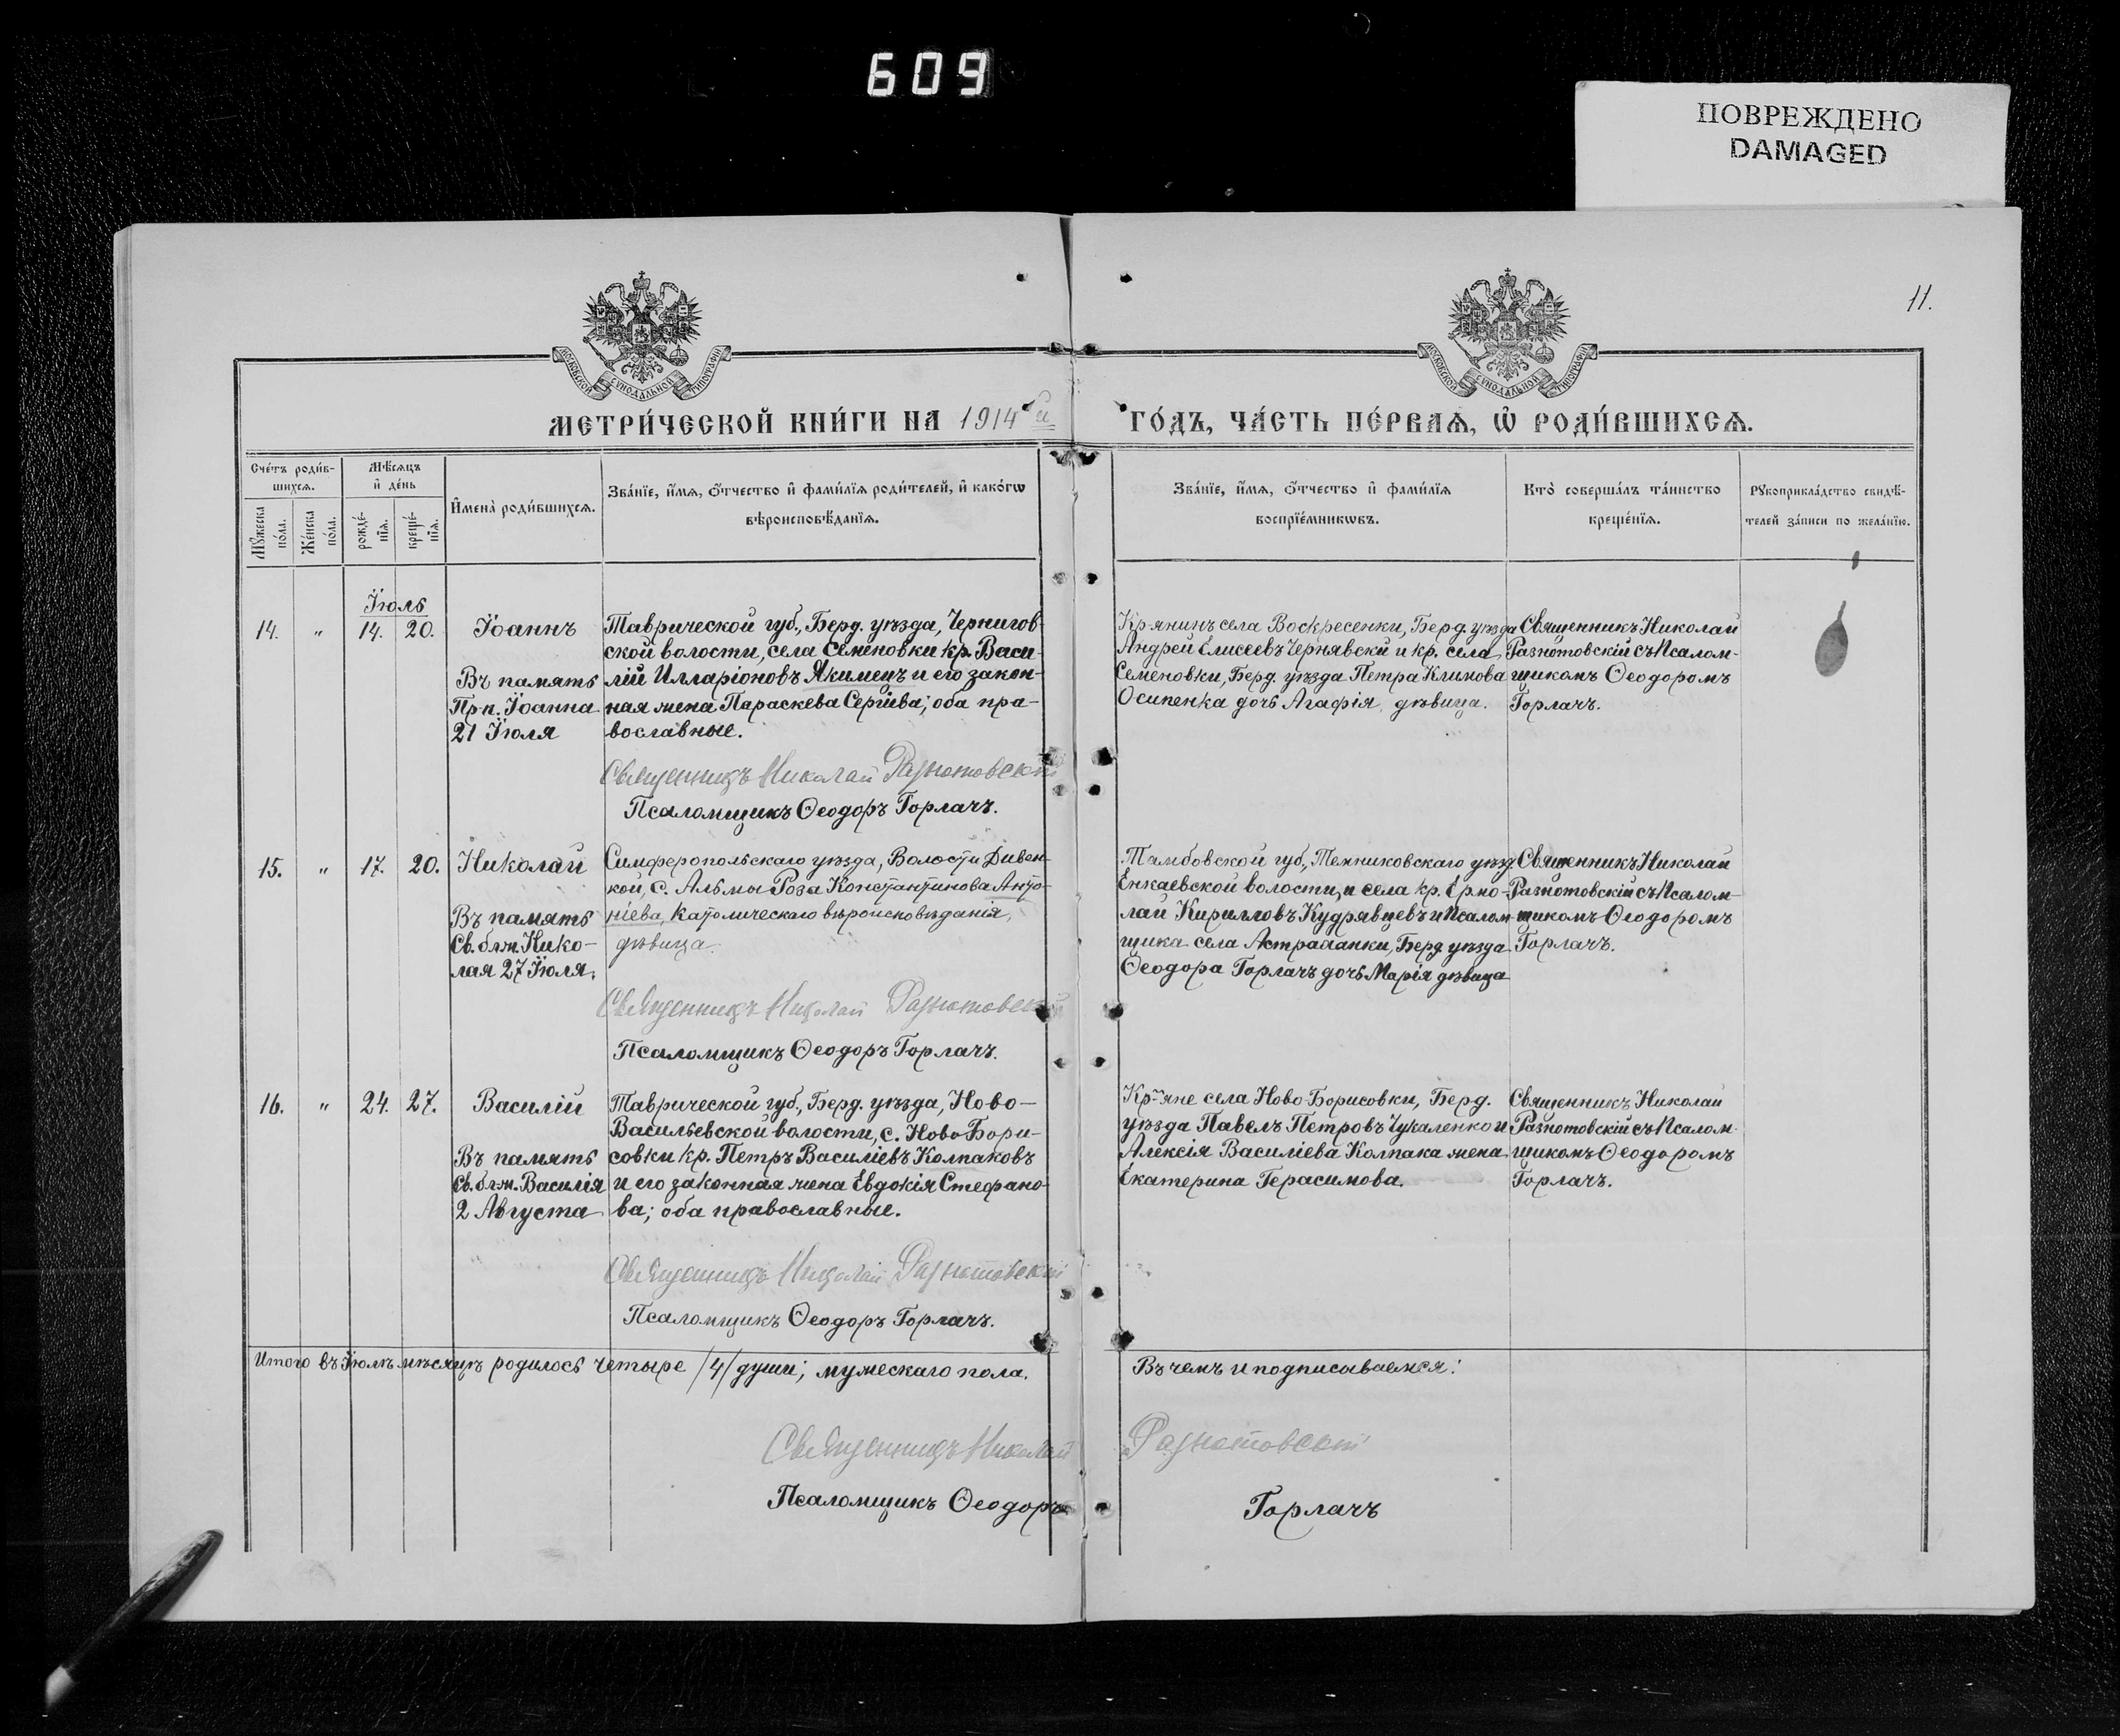 609
ПОВРЕЖДЕНО
DAMAGED
11.
МОСКОВСКОЙ СУНОДАЛЬНОЙ ТИПОГРАФІИ
МОСКОВСКОЙ СУНОДАЛЬНОЙ ТИПОГРАФІИ
МЕТРИ́ЧЕСКОЙ КНИ́ГИ НА 1914 й
ГО́ДЪ, ЧА́СТЬ ПЕ́РВАѦ, Ѡ҆ РОДИ́ВШИХСѦ.
Сче́тъ роди́в-
шихсѧ.
Мѣ́сѧцъ
и҆ де́нь
И҆мена̀ роди́вшихсѧ.
Зва́нїе, и҆́мѧ, ѻ҆́тчество и҆ фами́лїѧ роди́телей, и҆ како́гѡ
вѣроисповѣ́данїѧ.
Мꙋ́жеска
по́ла.
Же́нска
по́ла.
рожде́-
нїѧ.
креще́-
нїѧ.
Зва́нїе, и҆́мѧ, ѻ҆́тчество и҆ фами́лїѧ
воспрїе́мникѡвъ.
Кто̀ соверша́лъ та́инство
креще́нїѧ.
Рꙋкоприкла́дство свидѣ́-
телей за́писи по жела́нїю.
Іюль
14. " 14. 20. Іоаннъ
Въ память
Прп. Іоанна
21 Іюля
Таврической губ., Берд. уѣзда, Чернигов-
ской волости, села Семеновки кр. Васи-
лій Илларіоновъ Якимецъ и его закон-
ная жена Параскева Сергіева; оба пра-
вославные.
Священникъ Николай Разнотовскій
Псаломщикъ Ѳеодоръ Горлачъ.
Кр-янинъ села Воскресенки, Берд. уѣзда
Андрей Елисеевъ Чернявскій и кр. села
Семеновки, Берд. уѣзда Петра Климова
Осипенка дочь Агафія, дѣвица.
Священникъ Николай
Разнотовскій съ Псалом-
щикомъ Ѳеодоромъ
Горлачъ.
15. " 17. 20. Николай
Въ память
Св. блж. Нико-
лая 27 Іюля.
Симферопольскаго уѣзда, Волости Дивен-
кой, с. Альмы Роза Константинова Анто-
ніева, католическаго вѣроисповѣданія,
дѣвица.
Священникъ Николай Разнотовскій
Псаломщикъ Ѳеодоръ Горлачъ.
Тамбовской губ., Темниковскаго уѣзд.
Енкаевской волости, и села кр. Ермо-
лай Кирилловъ Кудрявцевъ и Псалом-
щика села Астраханки, Берд. уѣзда
Ѳеодора Горлачъ дочь Марія дѣвица
Священникъ Николай
Разнотовскій съ Псалом-
щикомъ Ѳеодоромъ
Горлачъ.
16. " 24. 27. Василій
Въ память
Св. блж. Василія
2 Августа
Таврической губ., Берд. уѣзда, Ново-
Васильевской волости, с. Ново Бори-
совки кр. Петръ Василіевъ Колпаковъ
и его законная жена Евдокія Стефано-
ва; оба православные.
Священникъ Николай Разнотовскій
Псаломщикъ Ѳеодоръ Горлачъ.
Кр-яне села Ново-Борисовки, Берд.
уѣзда Павелъ Петровъ Чукаленко и
Алексія Василіева Колпака жена
Екатерина Герасимова.
Священникъ Николай
Разнотовскій съ Псалом-
щикомъ Ѳеодоромъ
Горлачъ.
Итого въ Іюлѣ мѣсяцѣ родилось четыре /4/ души; мужескаго пола.
Въ чемъ и подписываемся:
Священникъ Николай Разнотовскій
Псаломщикъ Ѳеодоръ Горлачъ